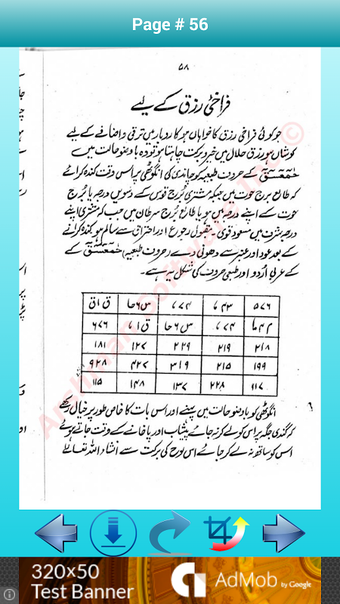 Page # 56
۵۸
فراخئ رزق کے لیے
جو کوئی فراخی رزق کا خواہاں ہو کاروبار میں ترقی و اضافے کے لیے
کوشاں ہو رزق حلال میں خیر و برکت چاہتا ہو تو وہ باوضو حالت میں
کے حروف طبعیہ کو چاندی کی انگوٹھی پر اس وقت کندہ کرائے
کہ طالع برج حوت میں جبکہ مشتری بُرج قوس کے دسویں درجہ یا بُرج
حوت کے اپنے درجہ میں ہو یا طالع بُرج سرطان میں جب کہ مشتری اپنے
درجہ شرف میں مسعود قوی۔ رجوع اور احتراق سے سالم ہو کندہ کرانے
کے بعد عود اور عنبر سے دھونی دے حروف طبعیہ کے
کے عربی اُردو اور طبعی حروف کی شکل یہ ہے۔
۵۷۶
۲۱۸ ۲۱۹ ۲۲۹ ۱۲۷ ۱۸۱
۱۹۹ ۲۱۵ ۳۱۹ ۴۲۷ ۹۲۸
۱۱۷ ۲۲۸ ۱۳۷ ۱۴۸ ۱۱۵
انگوٹھی کو باوضو حالت میں پہنے اور اس بات کا خاص طور پر خیال رکھے
کہ گندی جگہ پر اس کو لے کر نہ جائے پیشاب اور پاخانے کے وقت جاتے ہوئے
اس کو ساتھ نہ لے کر جائے اس لوح کی برکت سے انشاء اللہ تعالےٰ
320x50
Test Banner
AdMob by Google